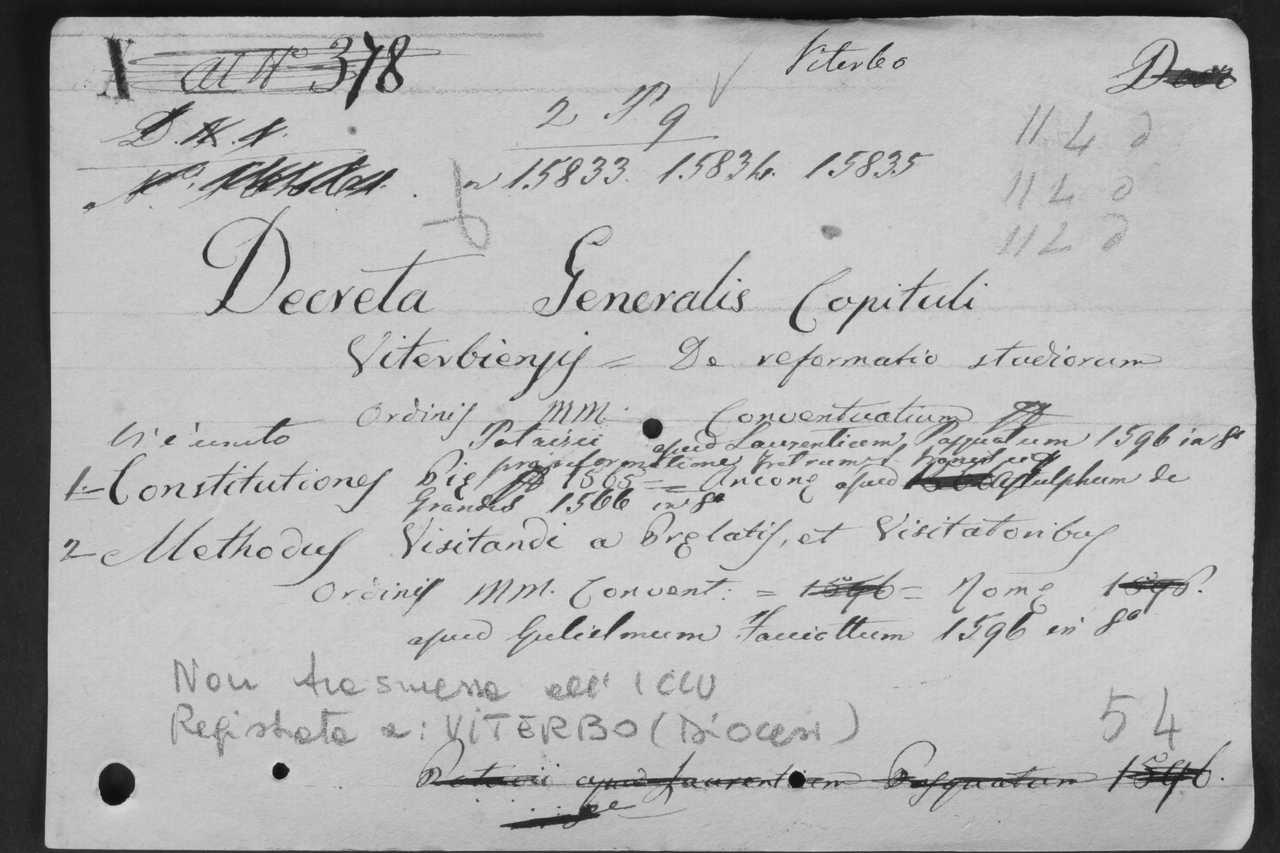 al N° 378
Viterbo
D. X. X.
2 P 9
11 L d
n 15833. 15834. 15835
11 L d
11 L d
Decreta Generalis Capituli
Viterbiensis = De reformatio studiorum
Ordinis MM. Conventualium
Vi è unito Patavii apud Laurentium Pasquatum 1596 in 8°
pro reformatione Fratrum
1.- Constitutiones Pię 1565 = Anconę apud Astulphum de
Grandis 1566 in 8°
2- Methodus Visitandi a Pręlatis, et Visitatoribus
Ordinis MM. Convent: = 1596 = Romę 1596.
apud Gulielmum Facciottum 1596 in 8°
Non trasmessa all' ICCU
Registrata a: VITERBO (Diocesi)
54
Patavii apud Laurentium Pasquatum 1596.